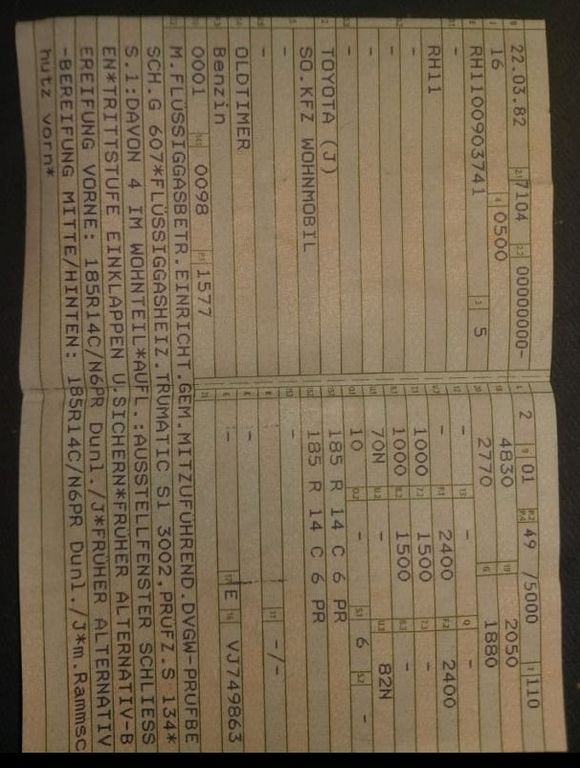 22.03.82 7104 00000000-
16 0500
RH1100903741 5
-
RH11
-
-
-
-
TOYOTA (J)
SO.KFZ WOHNMOBIL
-
-
OLDTIMER
Benzin
0001 0098 1577
2 01 49 /5000 110
4830 2050
2770 1880
- 2400 2400
- 1500 -
1000 1500 -
1000 82N
70N - 6 -
10
185 R 14 C 6 PR
185 R 14 C 6 PR
-
- -/-
- E VJ749863
M.FLÜSSIGGASBETR.EINRICHT.GEM.MITZUFÜHREND.DVGW-PRÜFBE
SCH.G 607*FLÜSSIGGASHEIZ.TRUMATIC S1 3002,PRÜFZ.S 134*
S.1:DAVON 4 IM WOHNTEIL*AUFL.:AUSSTELLFENSTER SCHLIESS
EN*TRITTSTUFE EINKLAPPEN U.SICHERN*FRÜHER ALTERNATIV-B
EREIFUNG VORNE: 185R14C/N6PR Dunl./J*FRÜHER ALTERNATIV
-BEREIFUNG MITTE/HINTEN: 185R14C/N6PR Dunl./J*m.Rammsc
hutz vorn*